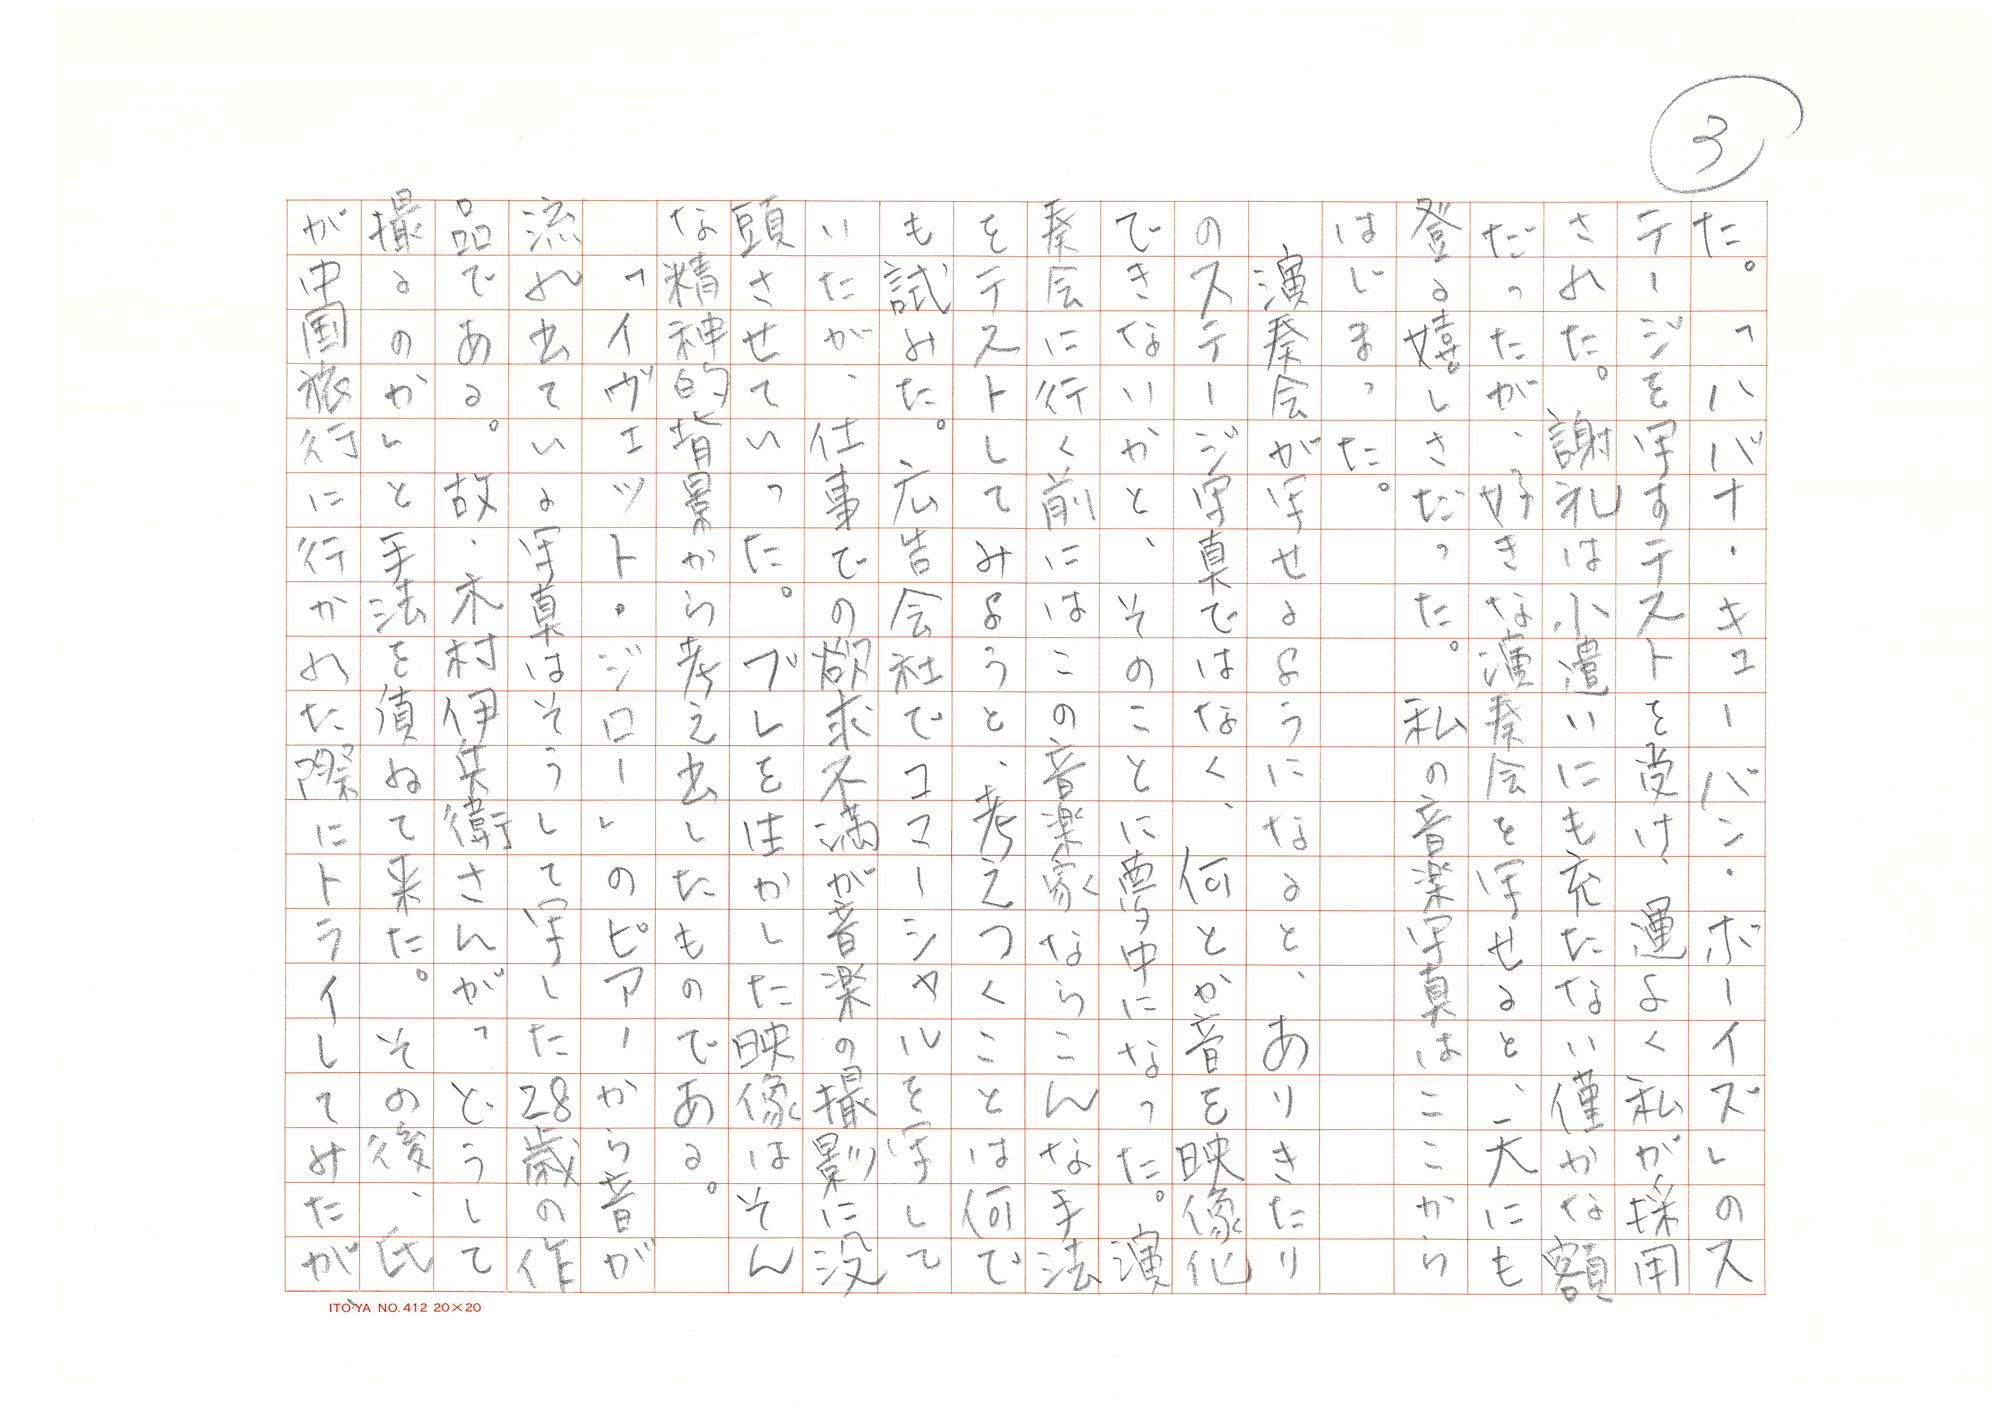 3
た。「ハバナ・キューバン・ボーイズ」のス
テージを写すテストを受け、運よく私が採用
された。謝礼は小遣いにも充たない僅かな額
だったが、好きな演奏会を写せると、天にも
登る嬉しさだった。私の音楽写真はここから
はじまった。
演奏会が写せるようになると、ありきたり
のステージ写真ではなく、何とか音を映像化
できないかと、そのことに夢中になった。演
奏会に行く前にはこの音楽家ならこんな手法
をテストしてみようと、考えつくことは何で
も試みた。広告会社でコマーシャルを写して
いたが、仕事での欲求不満が音楽の撮影に没
頭させていった。ブレを生かした映像はそん
な精神的背景から考え出したものである。
「イヴェット・ジロー」のピアーから音が
流れ出ている写真はそうして写した28歳の作
品である。故・木村伊兵衛さんが「どうして
撮るのか」と手法を偵ねて来た。その後、氏
が中国旅行に行かれた際にトライしてみたが、
ITO-YA NO.412 20×20